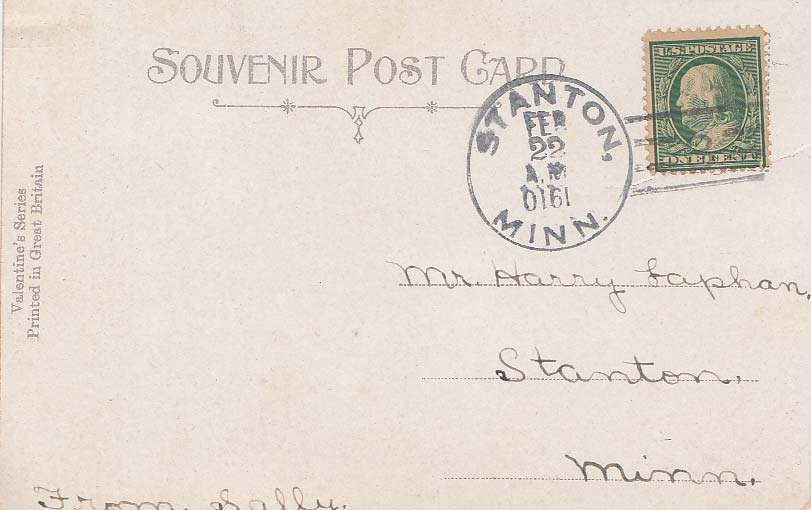 SOUVENIR POST CARD
U.S. POSTAGE
ONE CENT
STANTON,
FEB
22
A.M
0161
MINN.
Valentine's Series
Printed in Great Britain
Mr. Harry Laphan,
Stanton,
Minn.
From, Sally.